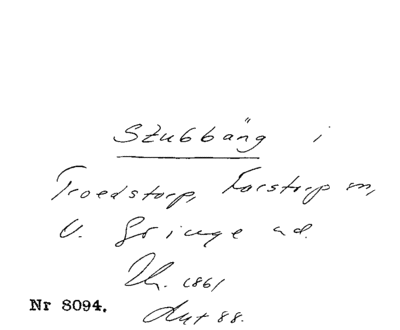 Stubbäng i
Troedstorp, Torstorp m,
V. Göinge hd.
1861
Ant 88.
Nr 8094.